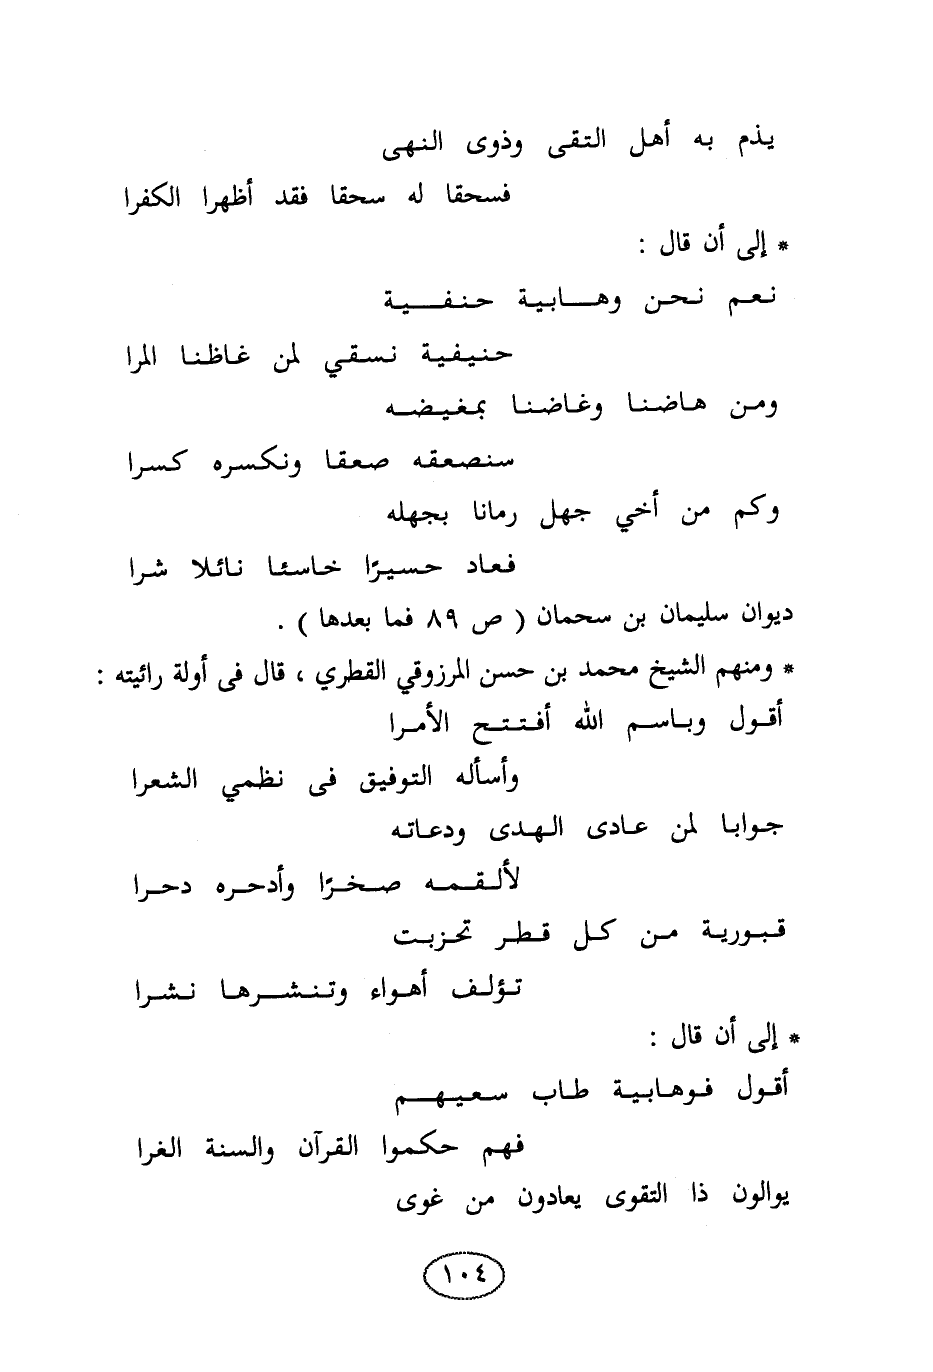 يذم به أهل التقى وذوى النهى
فسحقا له سحقا فقد أظهرا الكفرا
* إلى أن قال :
نعم نحن وهابية حنفية
حنيفية نسقي لمن غاظنا المرا
ومن هاضنا وغاضنا بمغيضه
سنصعقه صعقا ونكسره كسرا
وكم من أخي جهل رمانا بجهله
فعاد حسيرًا خاسئا نائلا شرا
ديوان سليمان بن سحمان ( ص ٨٩ فما بعدها ) .
* ومنهم الشيخ محمد بن حسن المرزوقي القطري ، قال فى أولة رائيته :
أقول وباسم الله أفتتح الأمرا
وأسأله التوفيق فى نظمي الشعرا
جوابا لمن عادى الهدى ودعاته
لألقمه صخرًا وأدحره دحرا
قبورية من كل قطر تحزبت
تؤلف أهواء وتنشرها نشرا
* إلى أن قال :
أقول فوهابية طاب سعيهم
فهم حكموا القرآن والسنة الغرا
يوالون ذا التقوى يعادون من غوى
١٠٤